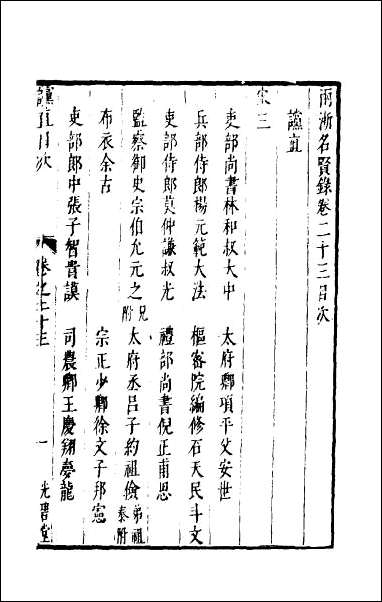 兩浙名賢錄卷二十三目次
讜直
宋三
吏部尚書林和叔大中　太府卿項平父安世
兵部侍郎楊元範大法　樞密院編修石天民斗文
吏部侍郎莫仲謙叔光　禮部尚書倪正甫思
監察御史宗伯允元之兄附　太府丞呂子約祖儉弟祖泰附
布衣余古　宗正少卿徐文子邦憲
吏部郎中張子智貴謨　司農卿王慶翔夢龍
讜直目次　卷之二十三　一　光碧堂